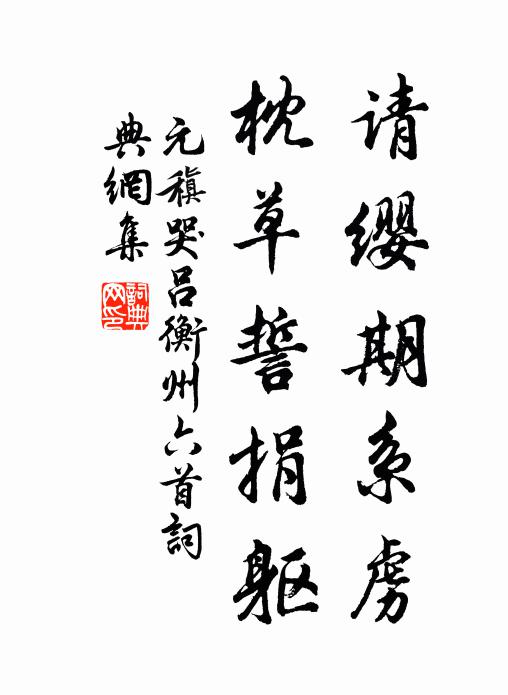 请缨期系虏
枕草誓捐躯
元稹哭吕衡州六首词
典網集
詞典
网印